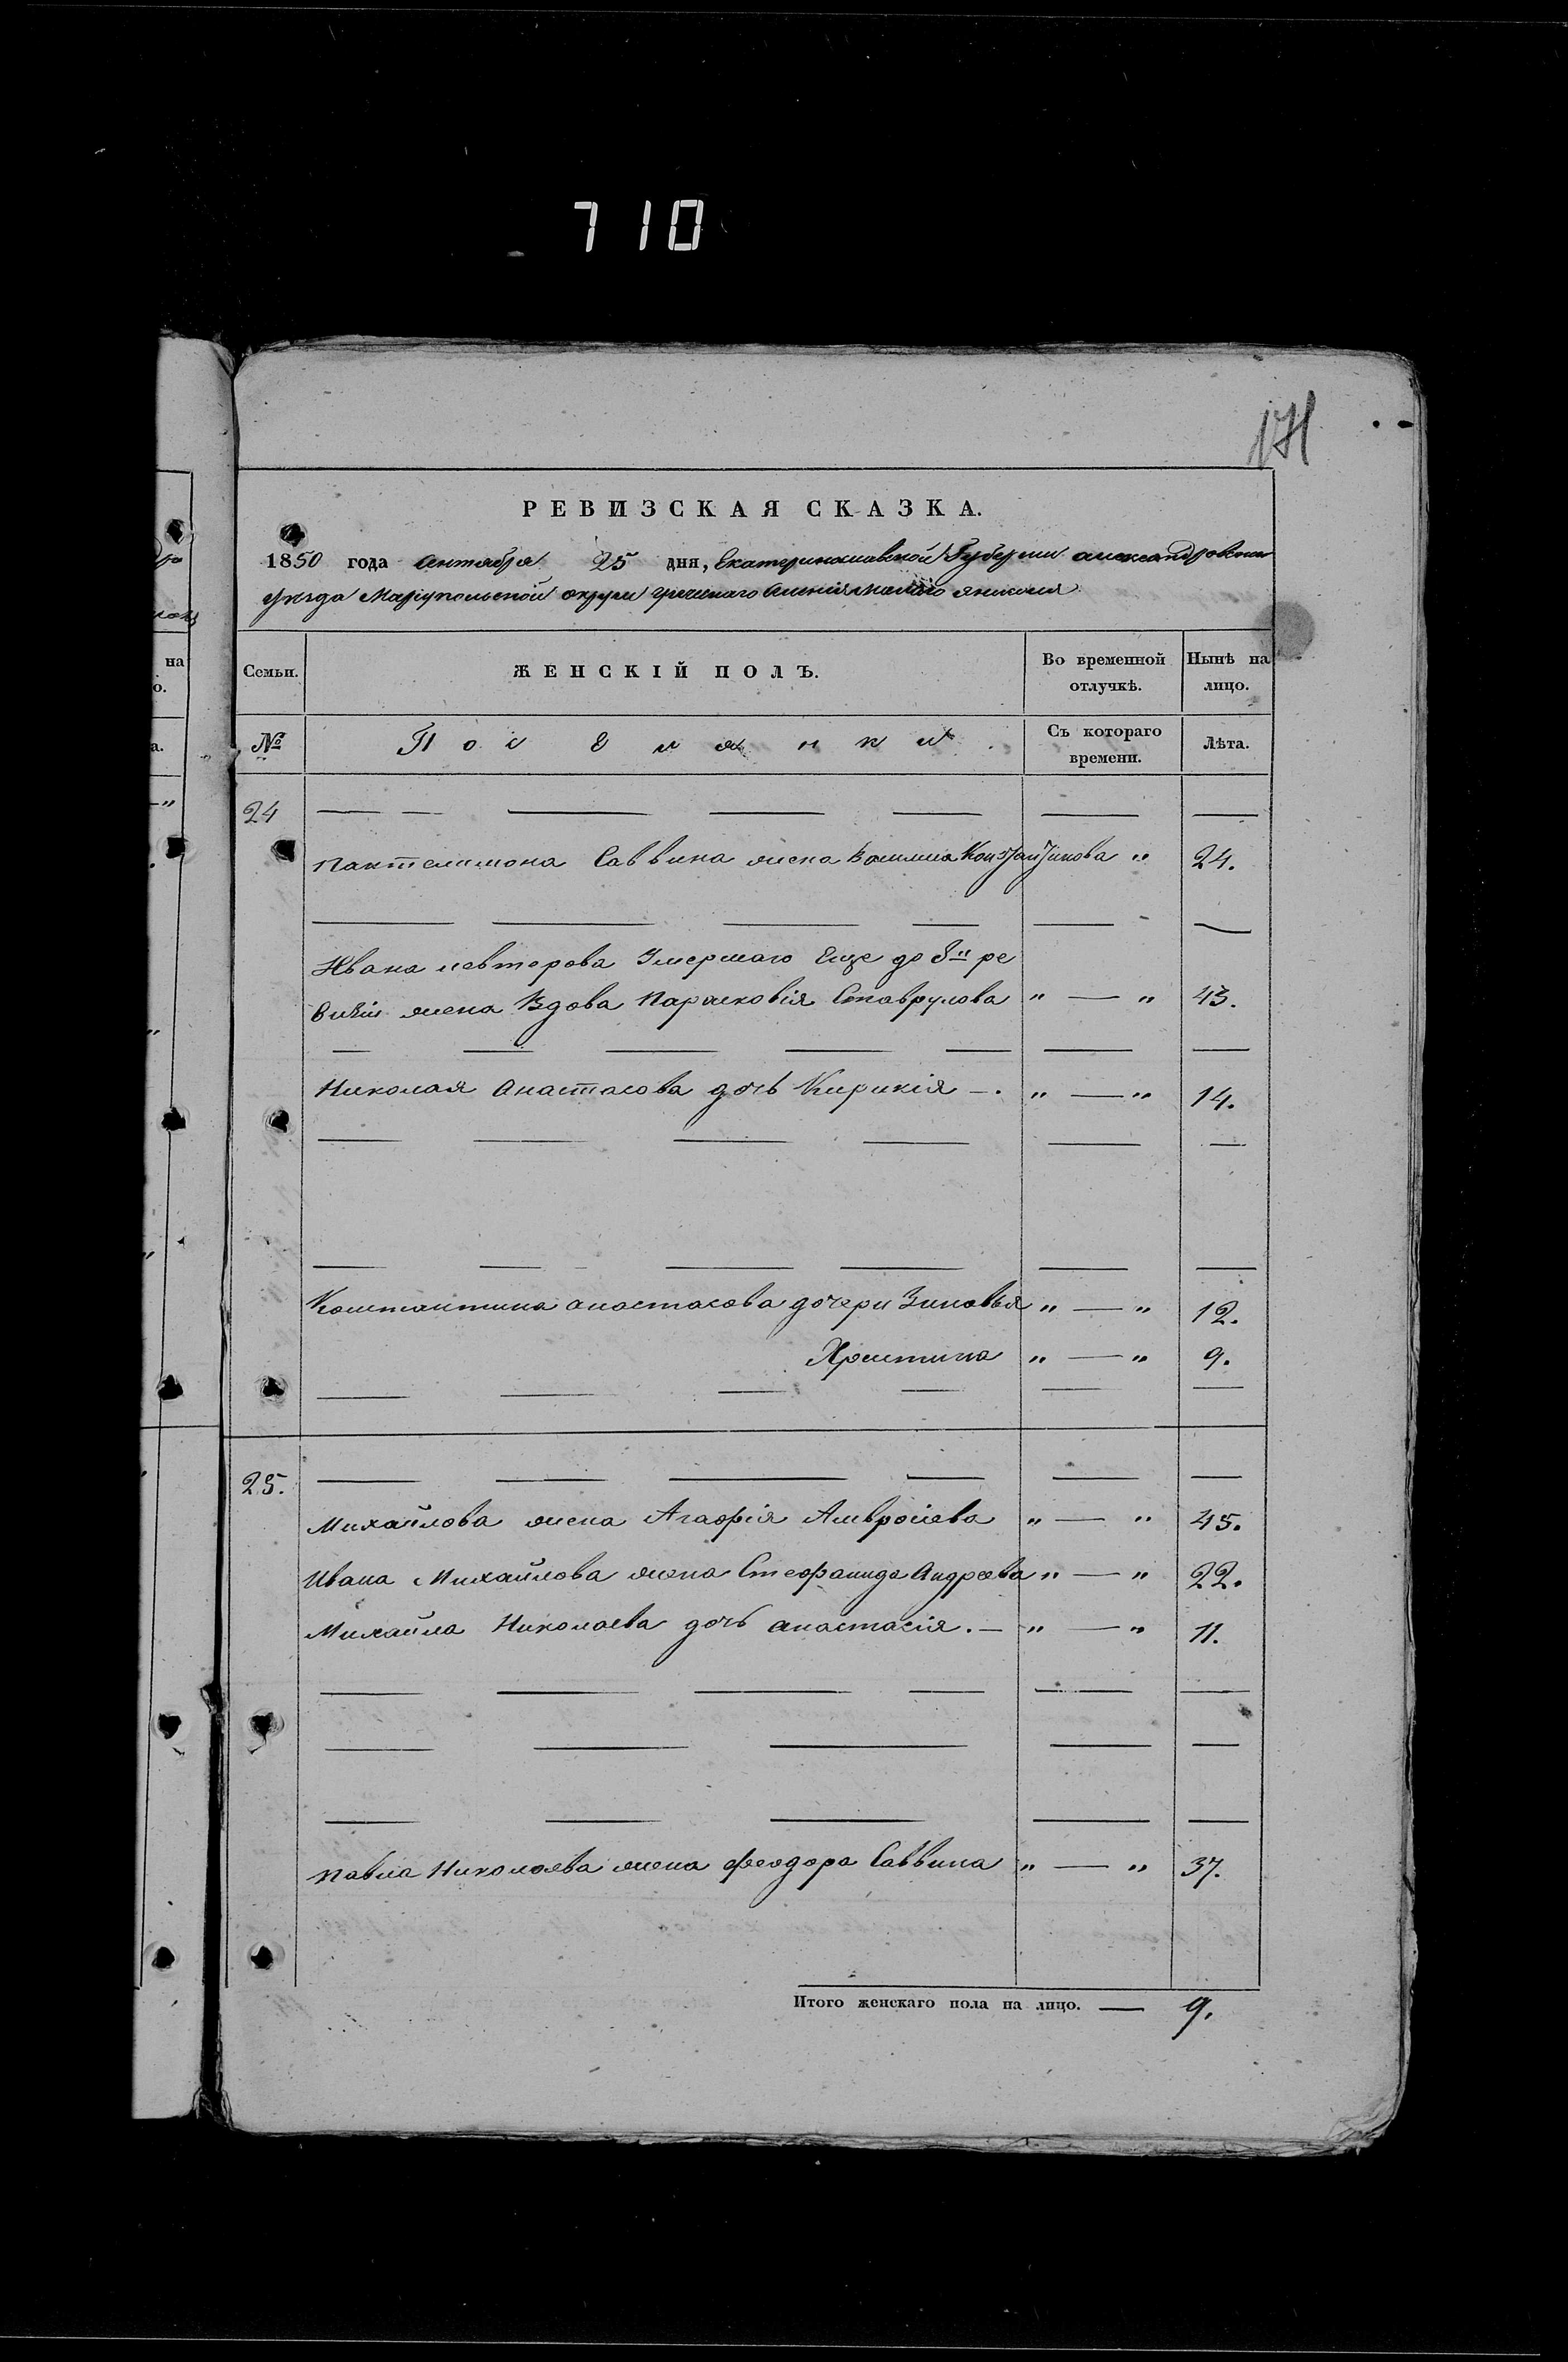 710
171
РЕВИЗСКАЯ СКАЗКА.
1850 года октября 25 дня, Екатеринославской Губернии александровскаго
уезда Маріупольской округи греческаго селенія малаго янисоля
Семьи. ЖЕНСКІЙ ПОЛЪ. Во временной отлучкѣ. Нынѣ на лицо.
№ Поселянки. Съ котораго времени. Лѣта.
24 — — — — — — —
Пантелимона Саввина жена Василиса " 24.
— — — — — —
Ивана Умершаго Еще до 8й ре
визіи жена Вдова Парасковія Ставрулова " — " 43.
— — — — — — —
Николая Анастасова дочь Кирикія — . " — " 14.
— — — — — —
— — — — — —
Константина анастасова дочери Зиновья " — " 12.
Христина " — " 9.
— — — — — —
25. — — — — — —
Михайлова жена Агафія Амвросіева " — " 45.
Ивана Михайлова жена Стефанида Андреева " — " 22.
Михайла Николаева дочь анастасія. — " — " 11.
— — — — — —
— — — — —
— — — — —
Павла Николаева жена феодора Саввина " — " 37.
Итого женскаго пола на лицо. — 9.